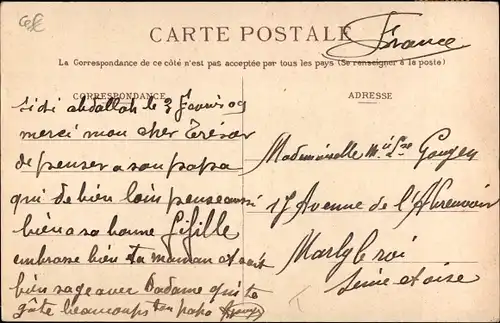 CARTE POSTALE
France
La Correspondance de ce côté n'est pas acceptée par tous les pays (Se renseigner à la poste)
CORRESPONDANCE
Sidi abdallah le 3 Janvier 09
merci mon cher Trésor
de penser a son papa
qui de bien loin pense aussi
bien a sa bonne fifille
embrasse bien ta maman et soit
bien sage avec Madame qui te
gâte beaucoups ton papa
ADRESSE
Mademoiselle
17 Avenue de l'Abreuvoir
Marly le roi
Seine et oise